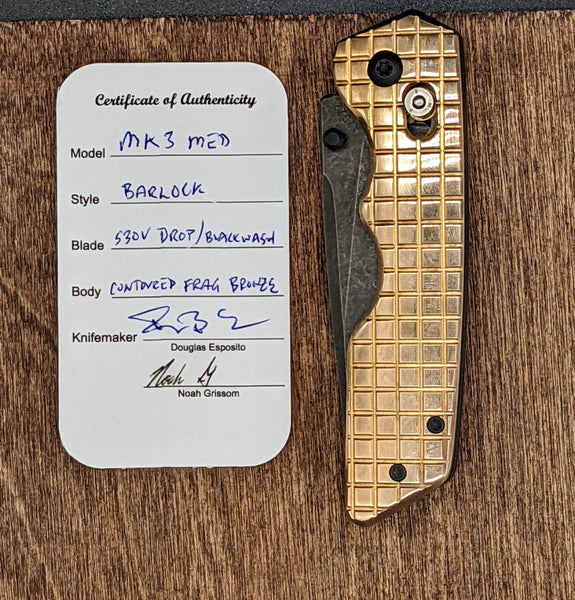 Certificate of Authenticity
Model MK3 MED
Style BARLOCK
Blade S30V DROP/BLACKWASH
Body CONTOURED FRAG BRONZE
Knifemaker
Douglas Esposito
Noah
Noah Grissom